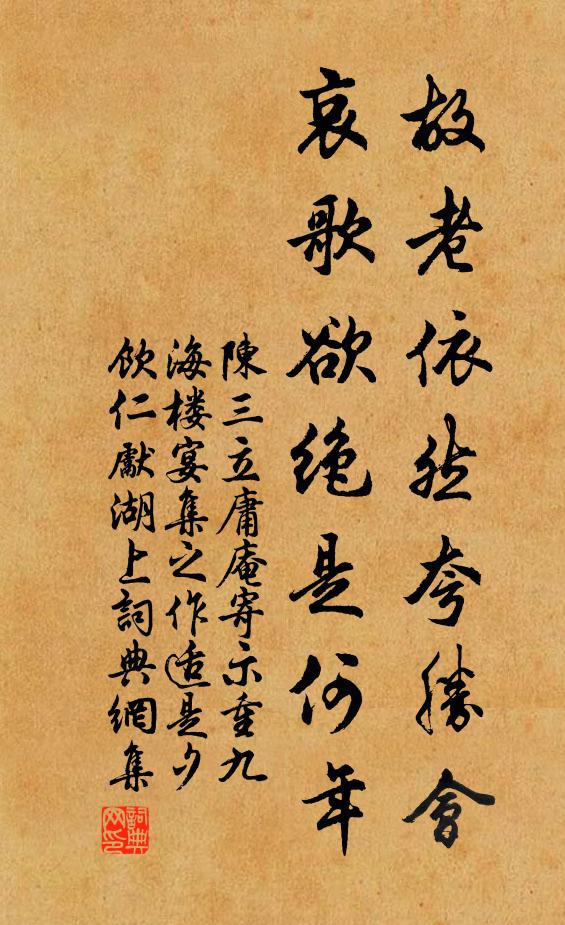 故老依然夸勝會
哀歌欲絶是何年
陳三立庸庵寄示重九
海楼宴集之作适是夕
飲仁獻湖上詞典網集
詞典网印